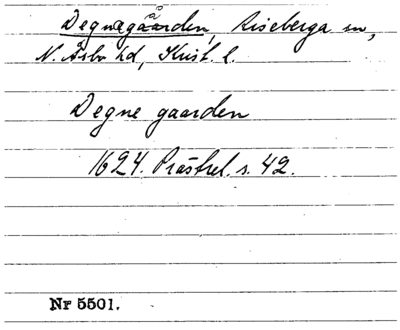 Degnegåården, Riseberga sn,
N. Åsbo hd, Krist. l.
Degne gaarden
1624. Prästrel. s. 42.
Nr 5501.